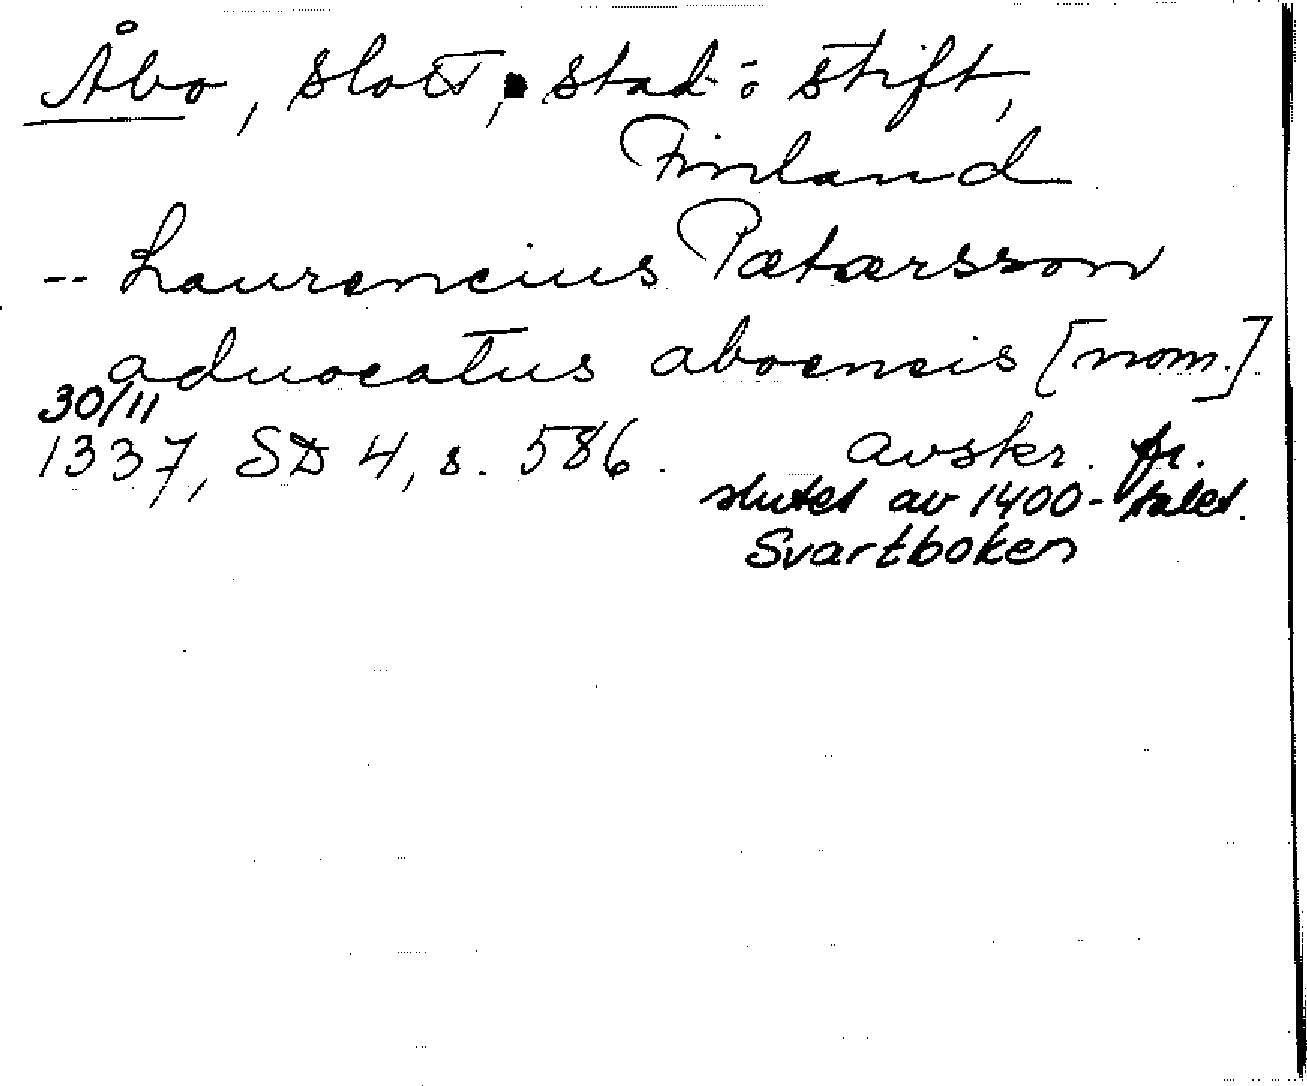 Åbo, slott, stad o stift,
Finland
-- Laurencius Pætærsson
aduocatus aboencis [nom.]
30/11
1337, SD 4, s. 586. avskr. fr.
slutet av 1400-talet.
Svartboken